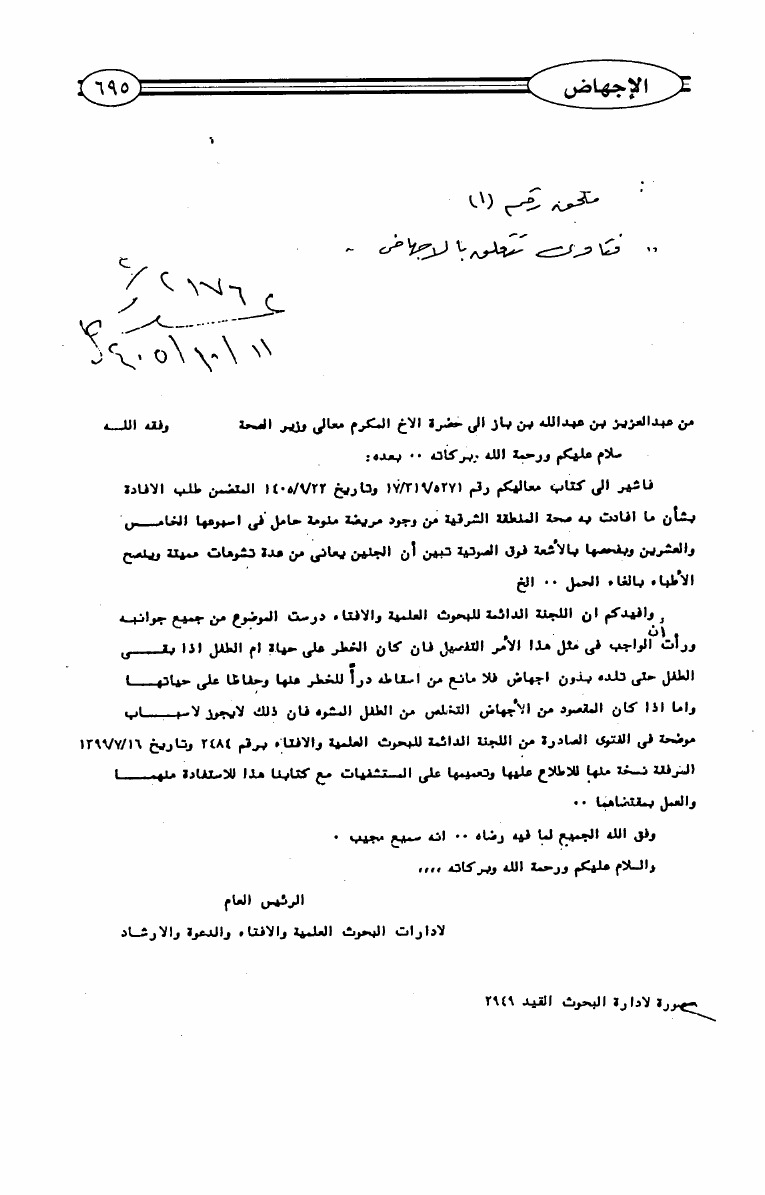 الإجهاض
٦٩٥
ملحق رقم (١)
فتاوى تتعلق بالاجهاض
٢١٧٦
١١/١٠/١٤٠٥
من عبدالعزيز بن عبدالله بن باز الى حضرة الاخ المكرم معالى وزير الصحة وفقه اللـــه
سلام عليكم ورحمة الله وبركاته ٠٠ بعده:
فاشير الى كتاب معاليكم رقم ١٧/٣١٩/٥٢٧١ وتاريخ ١٤٠٥/٩/٢٢ المتضمن طلب الافادة
بشأن ما افادت به صحة المنطقة الشرقية من وجود مريضة منومة حامل فى اسبوعها الخامـــس
والعشرين وبفحصها بالأشعة فوق الصوتية تبين أن الجنين يعانى من عدة تشوهات مميتة وينصح
الأطباء بالغاء الحمل ٠٠ الخ
وافيدكم ان اللجنة الدائمة للبحوث العلمية والافتاء درست الموضوع من جميع جوانبـه
ورأت ان الواجب فى مثل هذا الأمر التفصيل فان كان الخطر على حياة ام الطفل اذا بقـــــى
الطفل حتى تلده بدون اجهاض فلا مانع من اسقاطه درأً للخطر عنها وحفاظا على حياتهـــــا
واما اذا كان المقصود من الأجهاض التخلص من الطفل المشوه فان ذلك لايجوز لاسبـــــاب
موضحة فى الفتوى الصادرة من اللجنة الدائمة للبحوث العلمية والافتاء برقم ٢٤٨٤ وتاريخ ١٣٩٩/٧/١٦
المرفقة نسخة منها للاطلاع عليها وتعميمها على المستشفيات مع كتابنا هذا للاستفادة منهمـــــا
والعمل بمقتضاهما ٠٠
وفق الله الجميع لما فيه رضاه ٠٠ انه سميع مجيب ٠
والسلام عليكم ورحمة الله وبركاته ،،،،
الرئيس العام
لادارات البحوث العلمية والافتاء والدعوة والارشاد
صورة لادارة البحوث القيد ٢٩٤٩